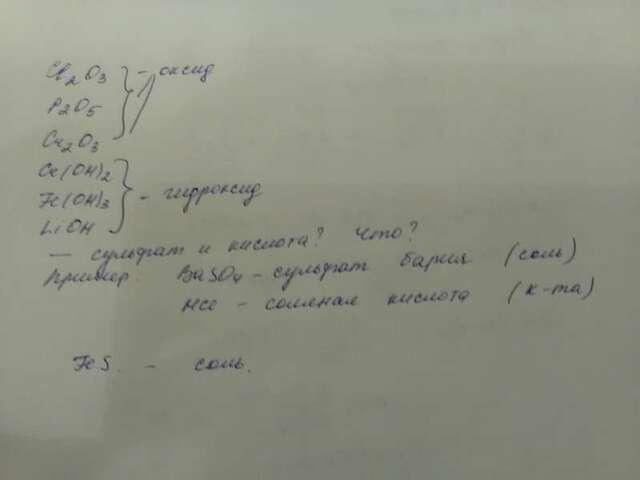 Cl₂O₃ } - оксид
P₂O₅
Cr₂O₃
Ca(OH)₂
Fe(OH)₃ } - гидроксид
LiOH
— сульфат и кислота? Что?
Пример: BaSO₄ - сульфат бария (соль)
HCl - соляная кислота (к-та)
FeS. - соль.